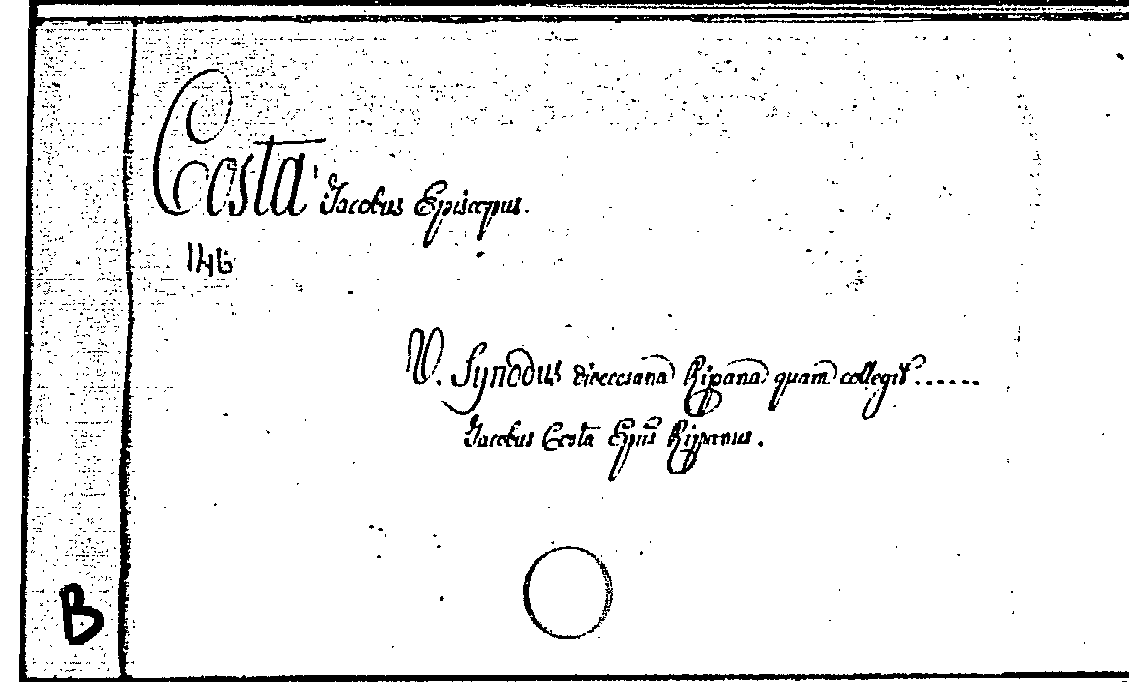 Costa' Jacobus Episcopus.
146
V. Synodus dioecesana Ripana quam collegit......
Jacobus Costa Epũs Ripanus.
B